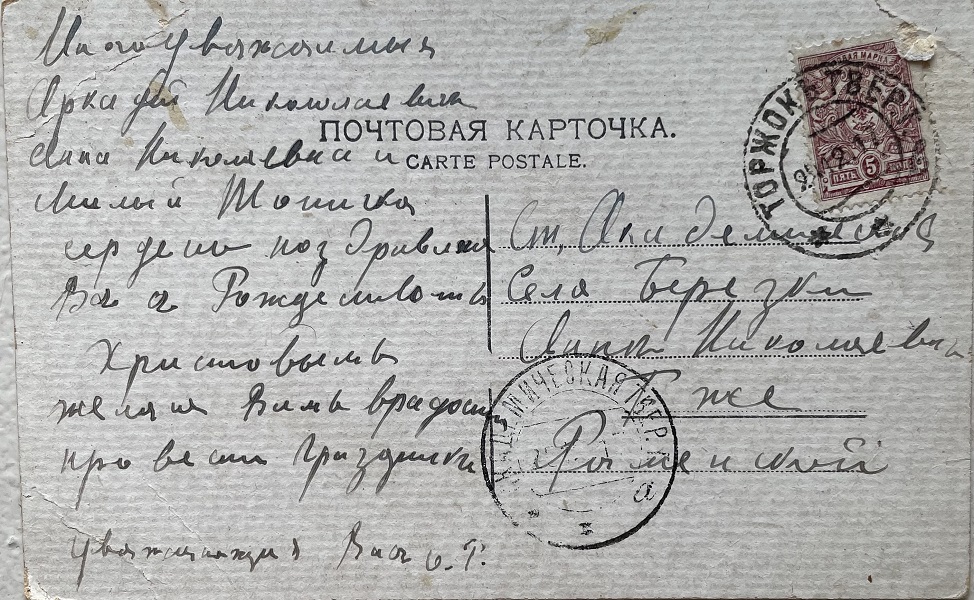 Многоуважаимыя
Аркадий Николаевичъ
Анна Николаевна и
Милый Тоничка
сердешно поздравляю
Васъ Рождествомъ
Христовымъ
желаю Вамъ врадости
провести Праздники
Уважающая Васъ
ПОЧТОВАЯ КАРТОЧКА.
CARTE POSTALE.
ТОРЖОКЪ ТВЕР.
ПЯТЬ 5 КОП.
Ст. Академическая
Села Березки
Анны Николаевны
Г же
Раменской
АКАДЕМИЧЕСКАЯ ТВЕР. Г.
а